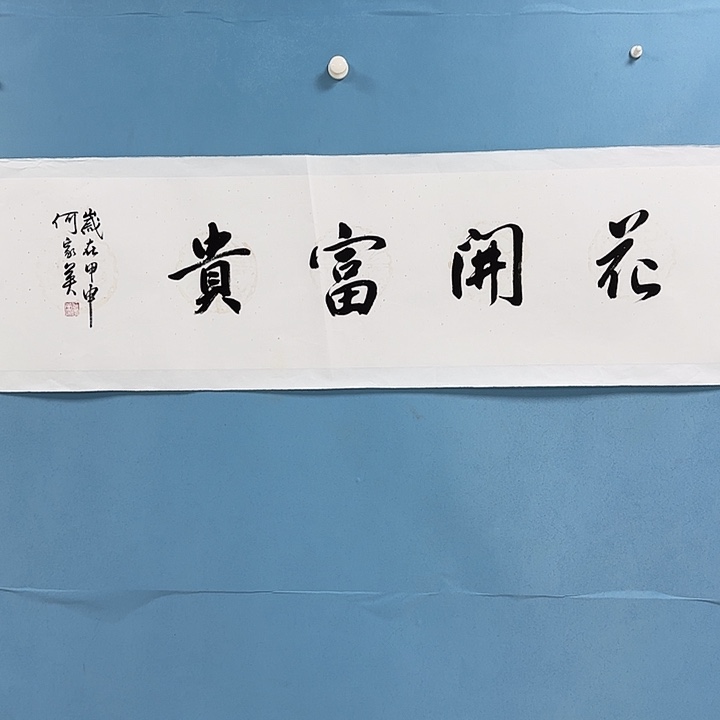 花開富貴
歲在甲申
何家英